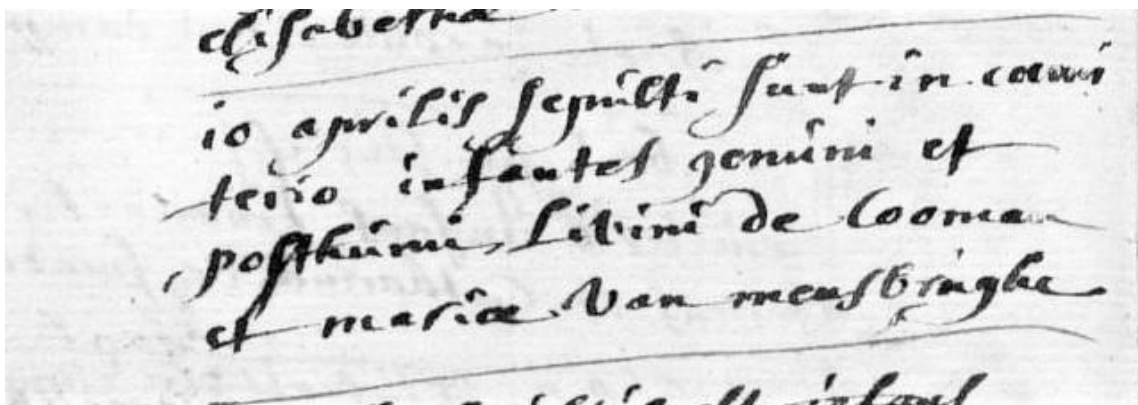 elisabethæ
10 aprilis sepulti sunt in coemi
terio infantes gemini et
posthumi, livini de Cooman
et mariæ Van meusbrughe
est infans